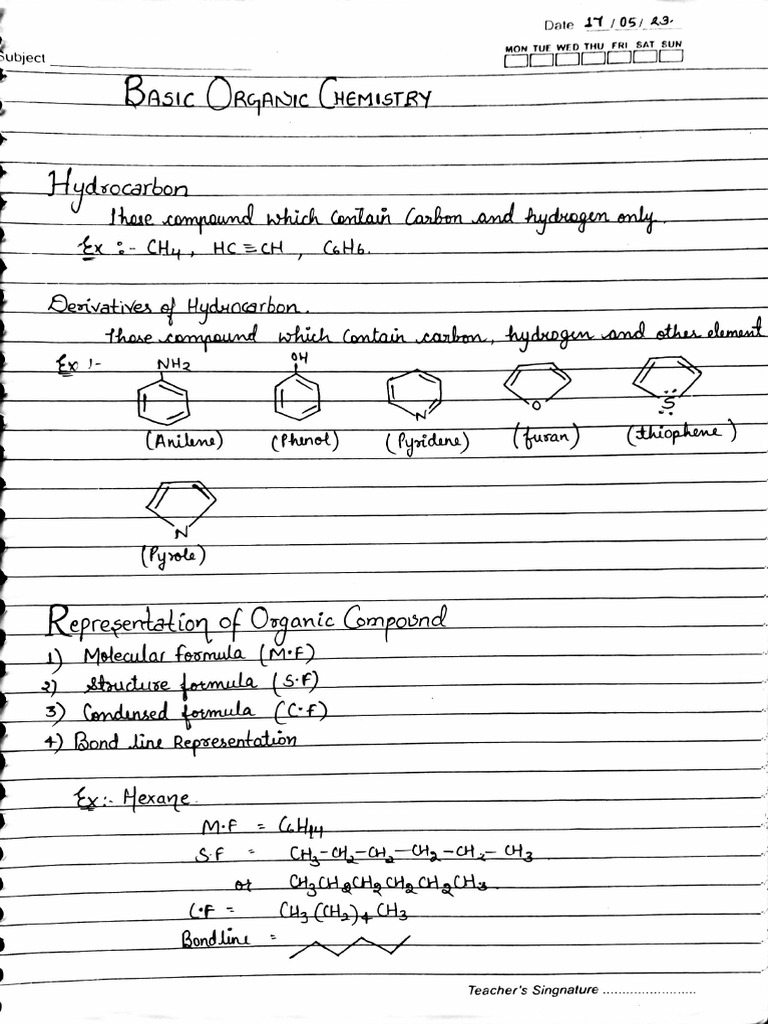 Date 17/05/23.
MON TUE WED THU FRI SAT SUN
Subject
BASIC ORGANIC CHEMISTRY
Hydrocarbon
Those compound which contain Carbon and hydrogen only.
Ex :- CH4, HC≡CH, C6H6.
Derivatives of Hydrocarbon.
Those compound which contain carbon, hydrogen and other element
Ex :- NH2 OH
N O S
(Anilene) (Phenol) (Pyridene) (furan) (thiophene)
N
(Pyrole)
Representation of Organic Compound
1) Molecular formula (M.F)
2) Structure formula (S.F)
3) Condensed formula (C.f)
4) Bond line Representation
Ex:- Hexane.
M.F = C6H14
S.F = CH3-CH2-CH2-CH2-CH2-CH3
or CH3CH2CH2CH2CH2CH3.
C.F = CH3(CH2)4CH3
Bondline =
Teacher's Singnature ........................